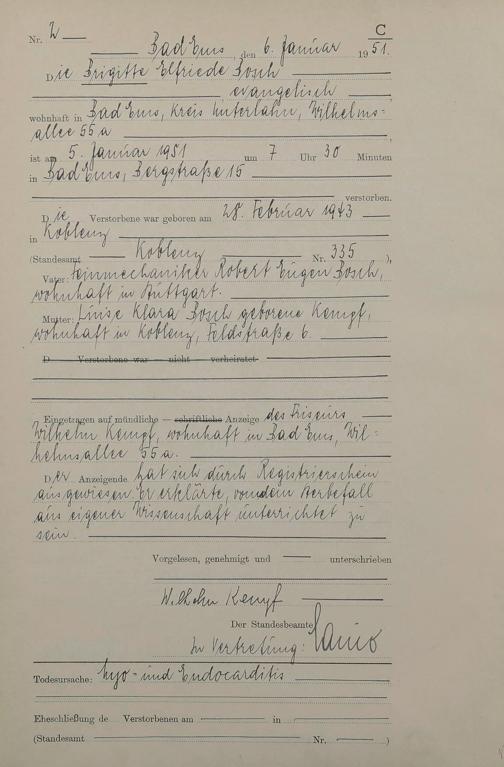 C
Nr. 2
Bad Ems, den 6. Januar 1951.
Die Brigitte Elfriede Bosch
evangelisch
wohnhaft in Bad Ems, Kreis Unterlahn, Wilhelms=
allee 55a
ist am 5. Januar 1951 um 7 Uhr 30 Minuten
in Bad Ems, Bergstraße 15
verstorben.
Die Verstorbene war geboren am 28. Februar 1943
in Koblenz
(Standesamt Koblenz Nr. 335 ),
Vater: Feinmechaniker Robert Eugen Bosch,
wohnhaft in Stuttgart.
Mutter: Luise Klara Bosch geborene Kempf,
wohnhaft in Koblenz, Feldstraße 6.
D Verstorbene war — nicht — verheiratet
Eingetragen auf mündliche — schriftliche Anzeige des Friseurs
Wilhelm Kempf, wohnhaft in Bad Ems, Wil=
helmsallee 55a.
Der Anzeigende hat sich durch Registrierschein
ausgewiesen. Er erklärte, von dem Sterbefall
aus eigener Wissenschaft unterrichtet zu
sein.
Vorgelesen, genehmigt und — unterschrieben
Wilhelm Kempf
Der Standesbeamte
In Vertretung:
Todesursache: Myo- und Endocarditis
Eheschließung de Verstorbenen am in
(Standesamt Nr. )